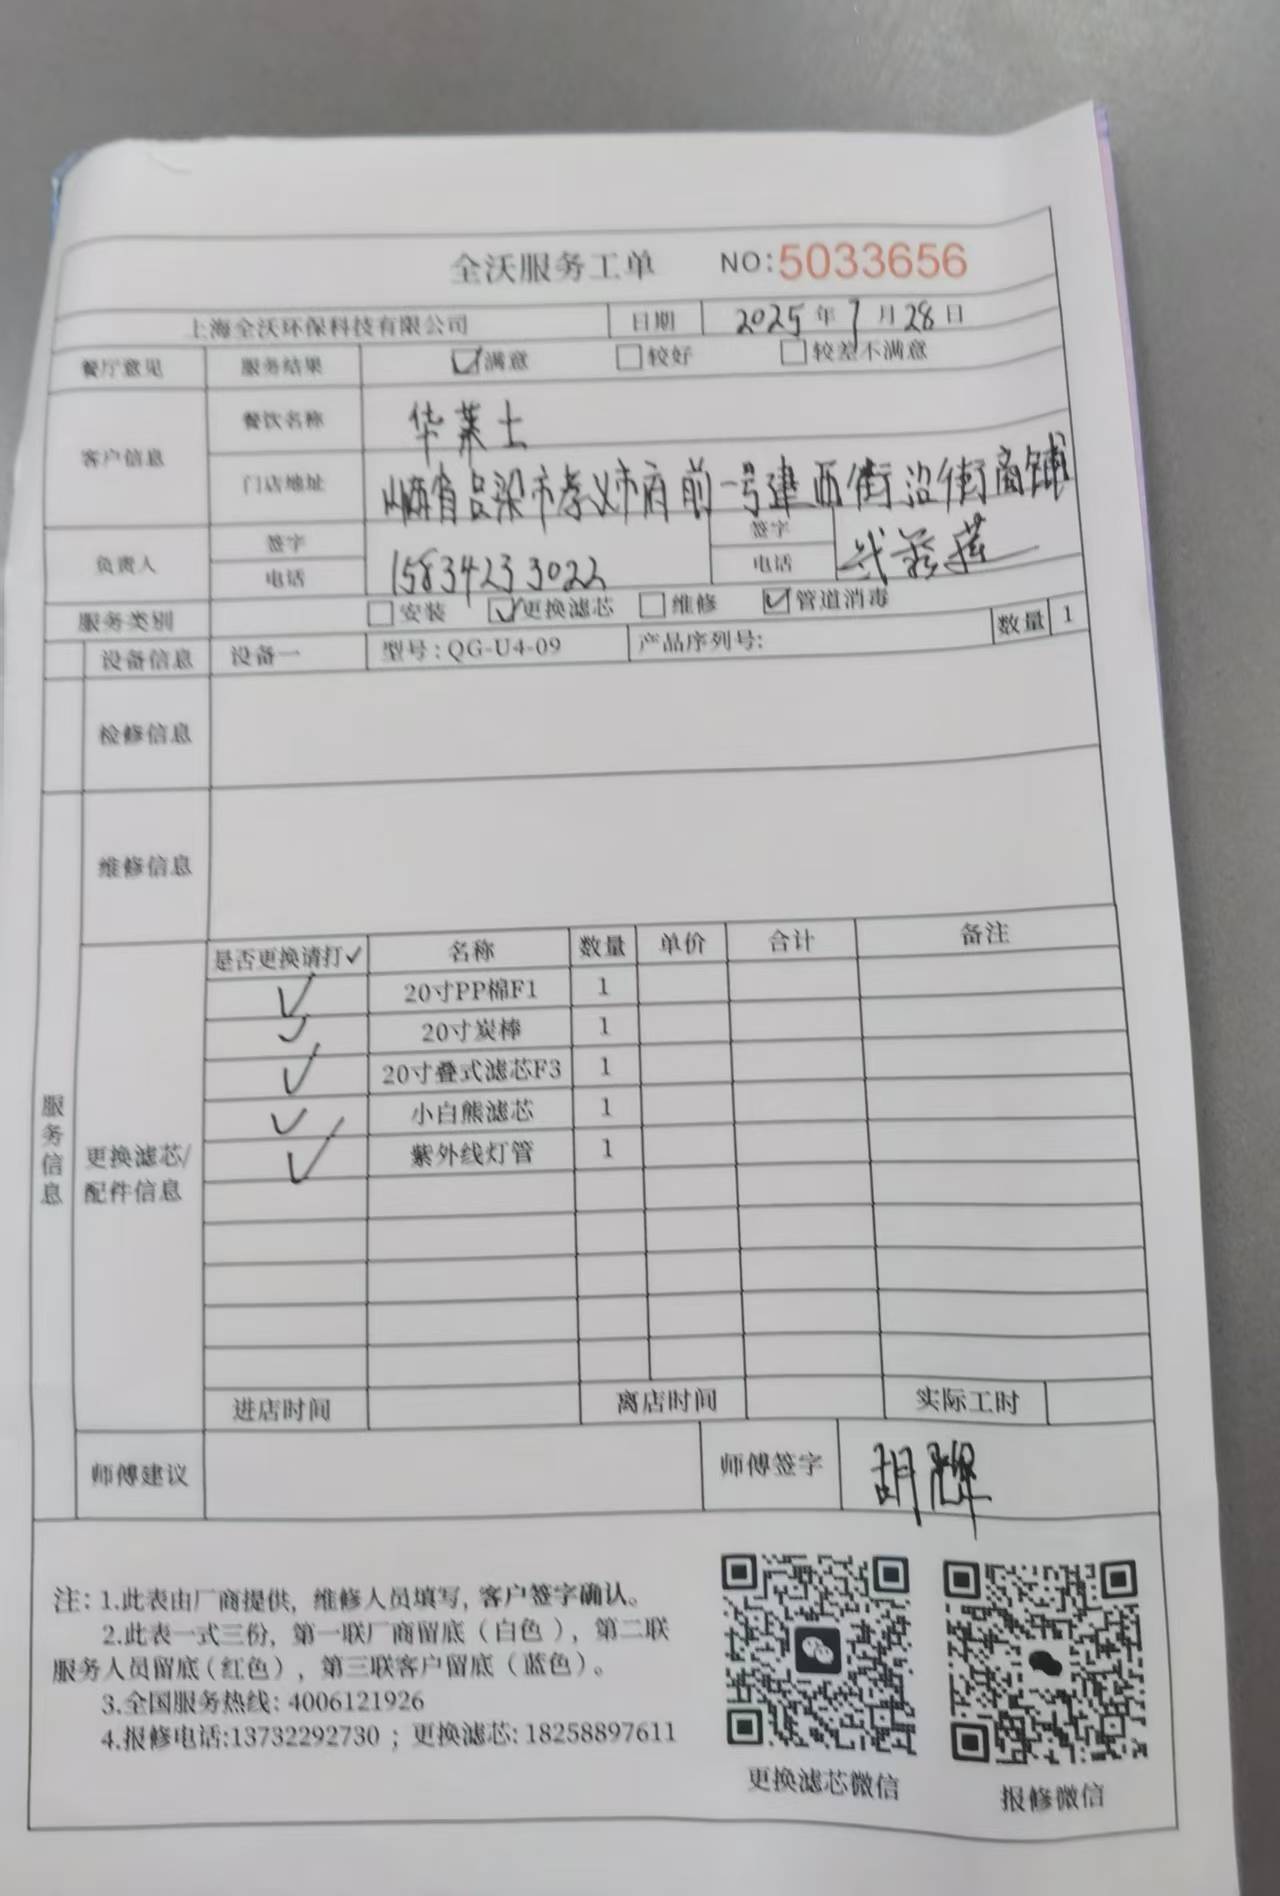 全沃服务工单 NO:5033656
上海全沃环保科技有限公司 日期 2025年7月28日
餐厅意见 服务结果 满意 较好 较差不满意
客户信息 餐饮名称 华莱士
门店地址 山西省吕梁市孝义市府前一号建西街沿街商铺
负责人 签字 签字
电话 15834233022 电话
服务类别 安装 更换滤芯 维修 管道消毒
设备信息 设备一 型号:QG-U4-09 产品序列号: 数量 1
检修信息
维修信息
服务信息
更换滤芯/配件信息
是否更换请打✓ 名称 数量 单价 合计 备注
✓ 20寸PP棉F1 1
✓ 20寸炭棒 1
✓ 20寸叠式滤芯F3 1
✓ 小白熊滤芯 1
✓ 紫外线灯管 1
进店时间 离店时间 实际工时
师傅建议 师傅签字 胡辉
注:1.此表由厂商提供,维修人员填写,客户签字确认。
2.此表一式三份,第一联厂商留底(白色),第二联
服务人员留底(红色),第三联客户留底(蓝色)。
3.全国服务热线:4006121926
4.报修电话:13732292730;更换滤芯:18258897611
更换滤芯微信 报修微信